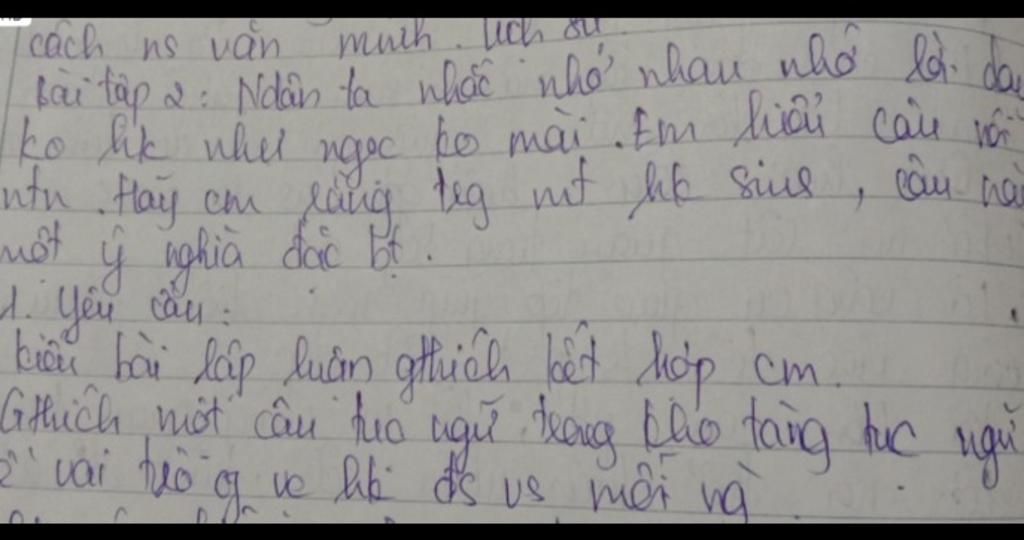 cách ns văn minh. lịch sự
Bài tập 2: Ndân ta nhắc nhở nhau nhớ lời dạy
ko hk như ngọc ko mài. Em hiểu câu nói
ntn. Hãy cm rằng trg mt hk sinh, câu
một ý nghĩa đặc bt.
1. Yêu cầu:
kiểu bài lập luận gthích kết hợp cm.
Gthích một câu tục ngữ trong kho tàng tục ngữ
vai trò q về hk đs vs mỗi ng